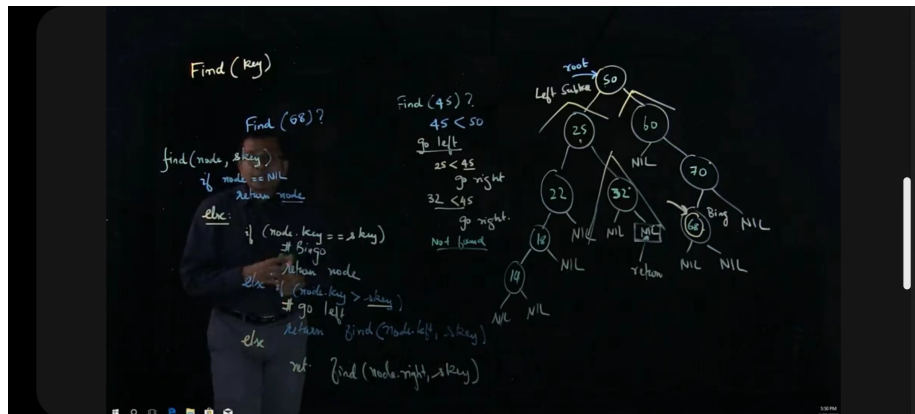 Find (key)
Find (68)?
find (node, skey)
if node == NIL
return node
else:
if (node.key == skey)
# Bingo
return node
else if (node.key > skey)
# go left
return find (node.left, skey)
else
ret find (node.right, skey)
Find (45)?
45 < 50
go left
25 < 45
go right
32 < 45
go right.
Not found
root
50
Left Subtree
25
60
NIL
70
22
32
68
Bing
NIL
18
NIL
NIL
NIL
NIL
NIL
NIL
return
NIL
NIL
3:50 PM